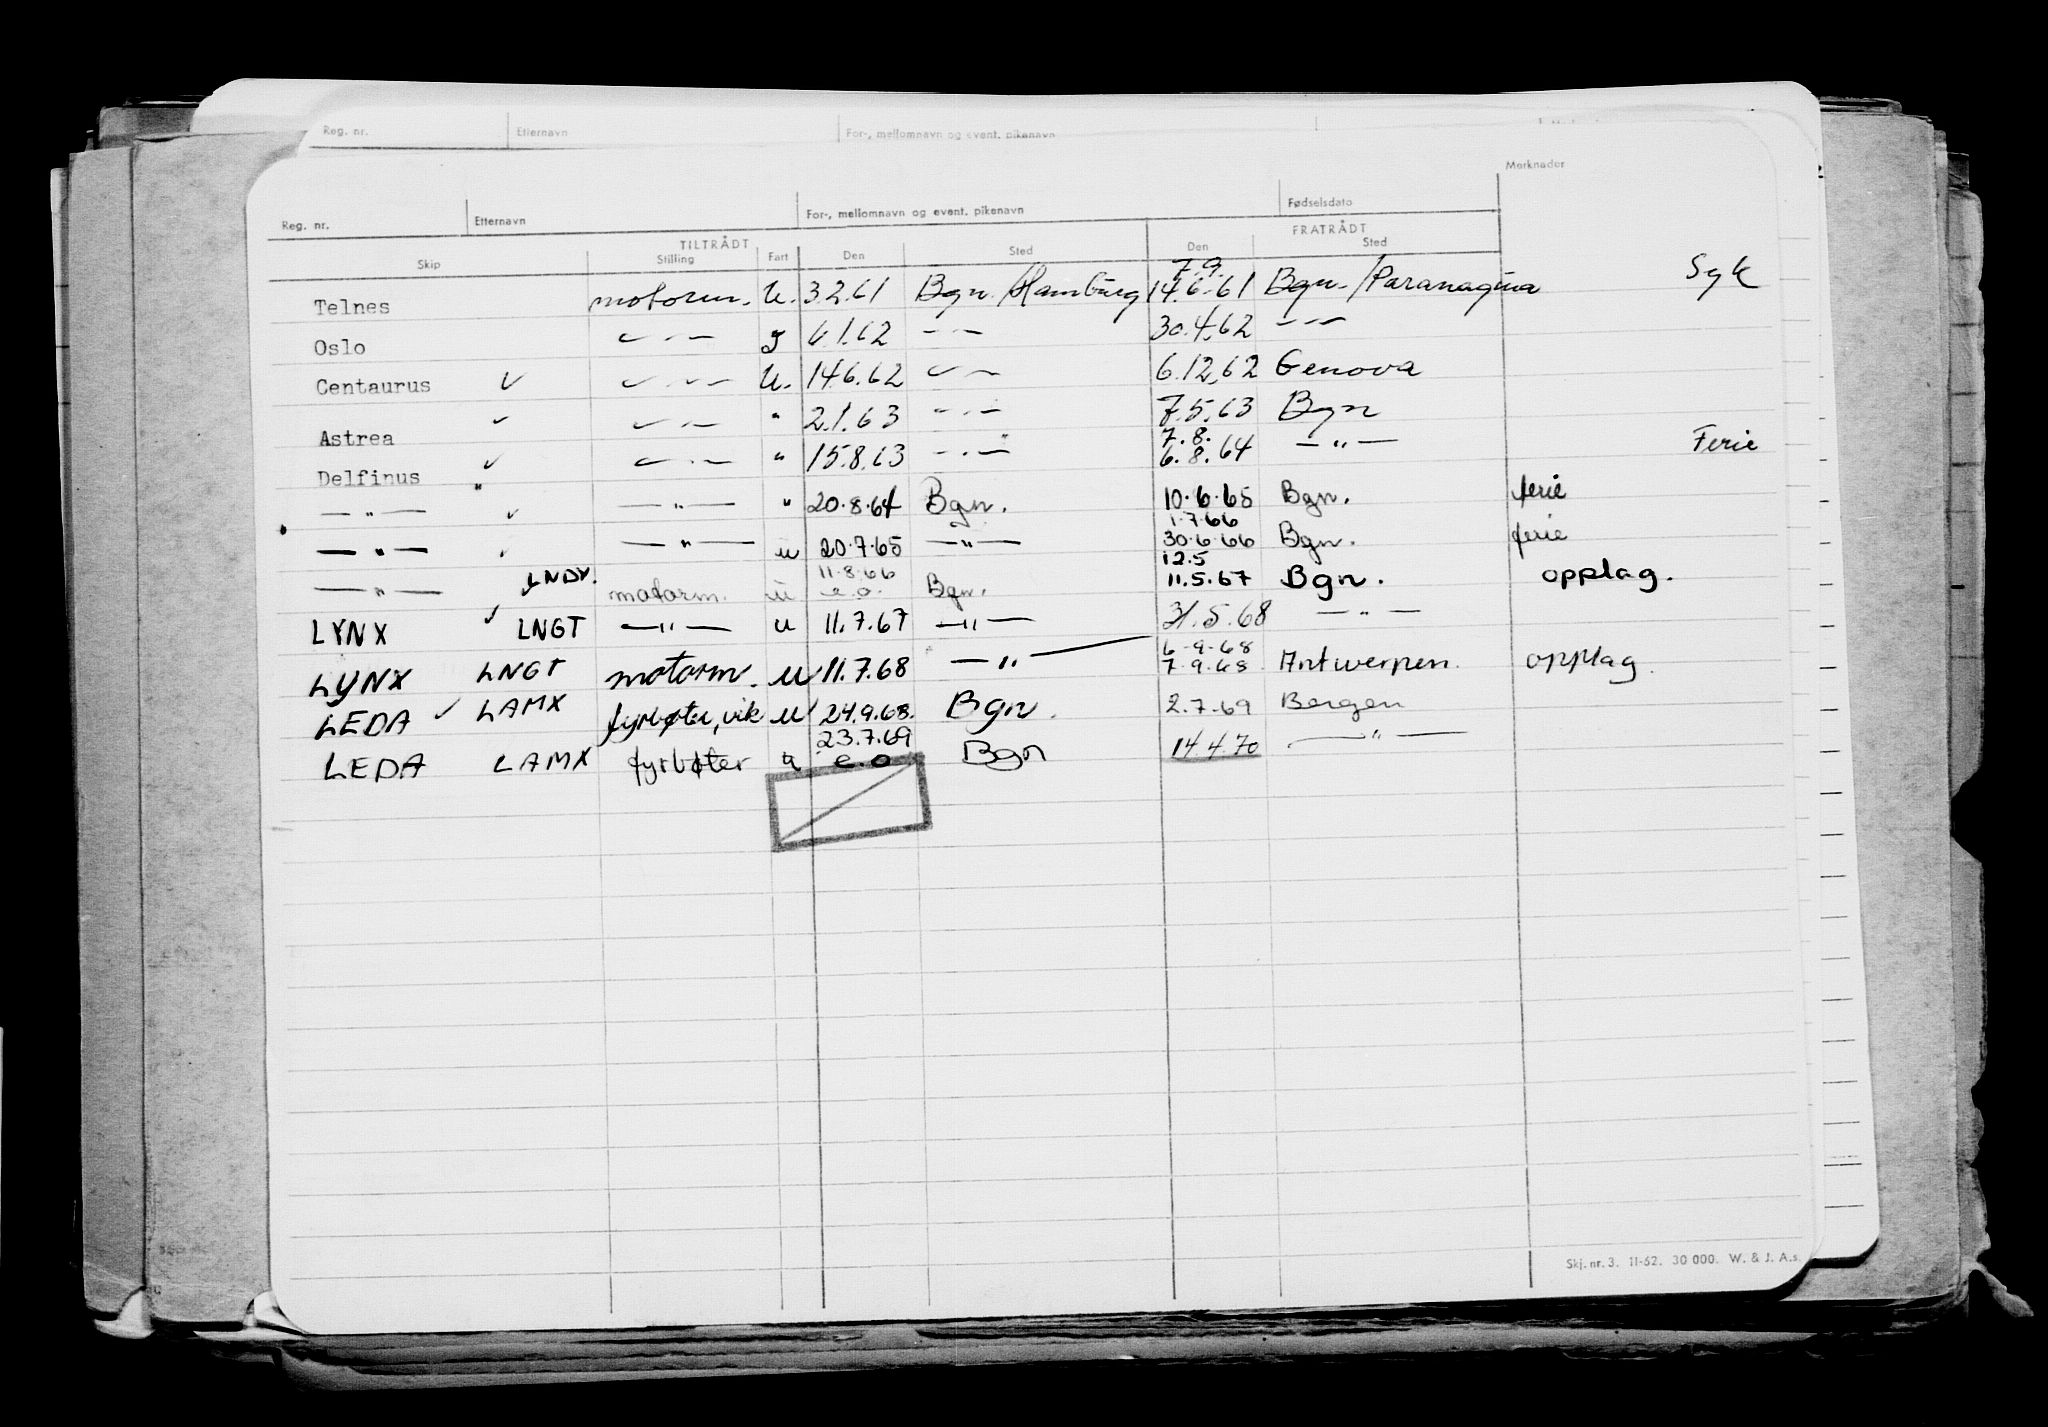 Reg. nr. Etternavn For-, mellomnavn og event. pikenavn
Merknader
Reg. nr. Etternavn For-, mellomnavn og event. pikenavn Fødselsdato
TILTRÅDT FRATRÅDT
Skip Stilling Fart Den Sted Den Sted
7.9.
Telnes motorm. U. 3.2.61 Bgn./Hamburg 14.6.61 Bgn./Paranagua Syk
Oslo — " — g 6.1.62 — " — 30.4.62 — " —
Centaurus ✓ — " — U. 14.6.62 — " — 6.12.62 Genova
Astrea ✓ — " — " 2.1.63 — " — 7.5.63 Bgn
7.8.
Delfinus ✓ — " — " 15.8.63 — " — 6.8.64 — " — Ferie
— " — " ✓ — " — " 20.8.64 Bgn. 10.6.65 Bgn. ferie
1.7.66
— " — ✓ — " — u 20.7.65 — " — 30.6.66 Bgn. ferie
11.8.66 12.5
— " — ✓ LNDV. motorm. u e.o. Bgn. 11.5.67 Bgn. opplag.
LYNX ✓ LNGT — " — u 11.7.67 — " — 31.5.68 — " —
6-9-68
LYNX LNGT motorm. u 11.7.68 — " — 7-9-68 Antwerpen. opplag.
LEDA ✓ LAMX fyrbøter, vik u 24.9.68. Bgn. 2.7.69 Bergen
23.7.69
LEDA LAMX fyrbøter u e.o Bgn 14.4.70 — " —
Skj. nr. 3. 11-62. 30 000. W. & J. A.s.